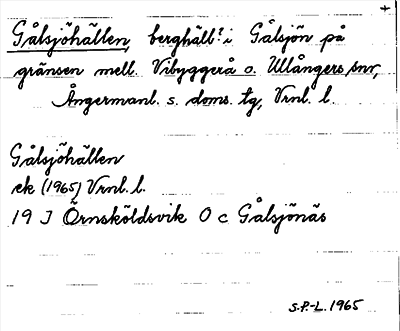 Gålsjöhällen, berghäll? i Gålsjön på
gränsen mell. Vibyggerå o. Ullångers snr,
Ångermanl. s. doms. tg, Vrnl. l.
Gålsjöhällen
ek (1965) Vrnl. l.
19 J Örnsköldsvik 0 c Gålsjönäs
S.P.-L. 1965